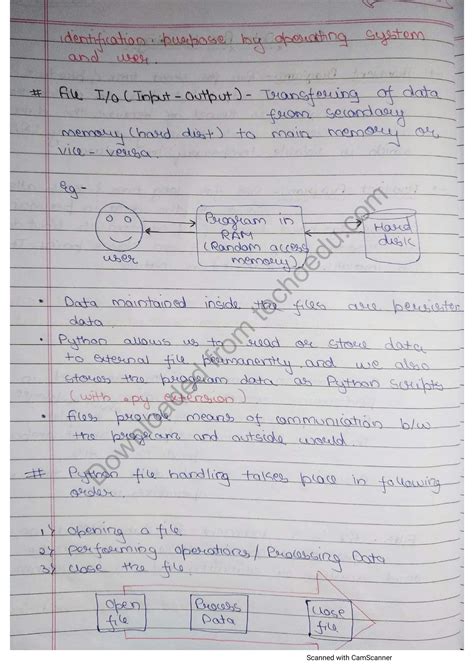 identification purpose by operating system
and user.
# File I/O (Input-Output) - Transfering of data
from secondary
memory (hard disk) to main memory or
vice-versa.
eg -
user
Program in
RAM
(Random access
memory)
Hard
disk
• Data maintained inside the files are persister
data.
• Python allows us to read or store data
to external file permanently and we also
stores the program data as Python scripts
(with .py extension)
• files provide means of communication b/w
the program and outside world.
# Python file handling takes place in following
order.
1) opening a file
2) performing operations / Processing Data
3) close the file.
Open
file
Process
Data
Close
file
Downloaded from techoedu.com
Scanned with CamScanner